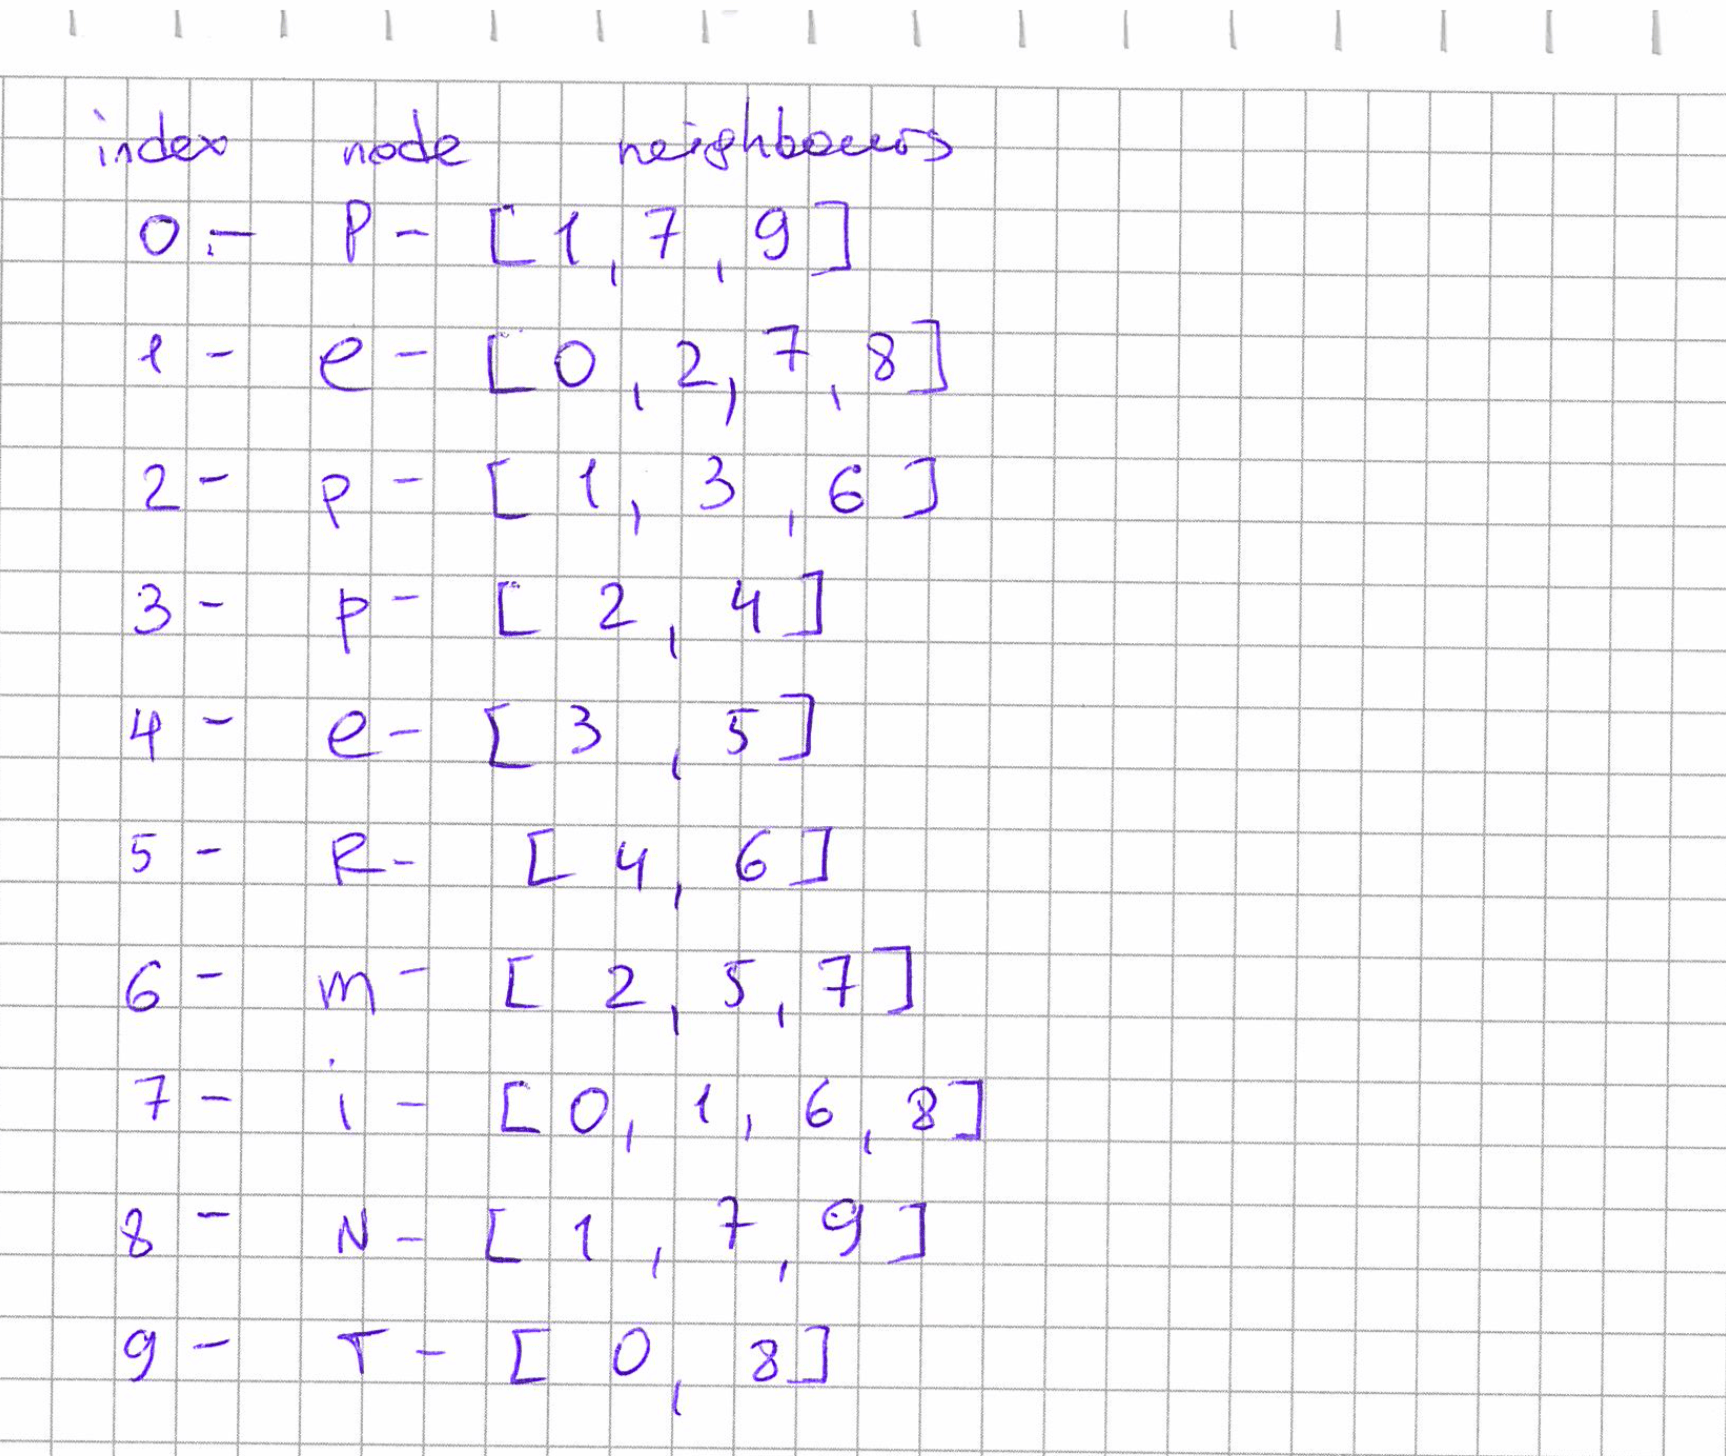 index node neighbours
0.- P - [1, 7, 9]
1 - e - [0, 2, 7, 8]
2 - p - [1, 3, 6]
3 - p - [2, 4]
4 - e - [3, 5]
5 - R - [4, 6]
6 - m - [2, 5, 7]
7 - i - [0, 1, 6, 8]
8 - N - [1, 7, 9]
9 - T - [0, 8]